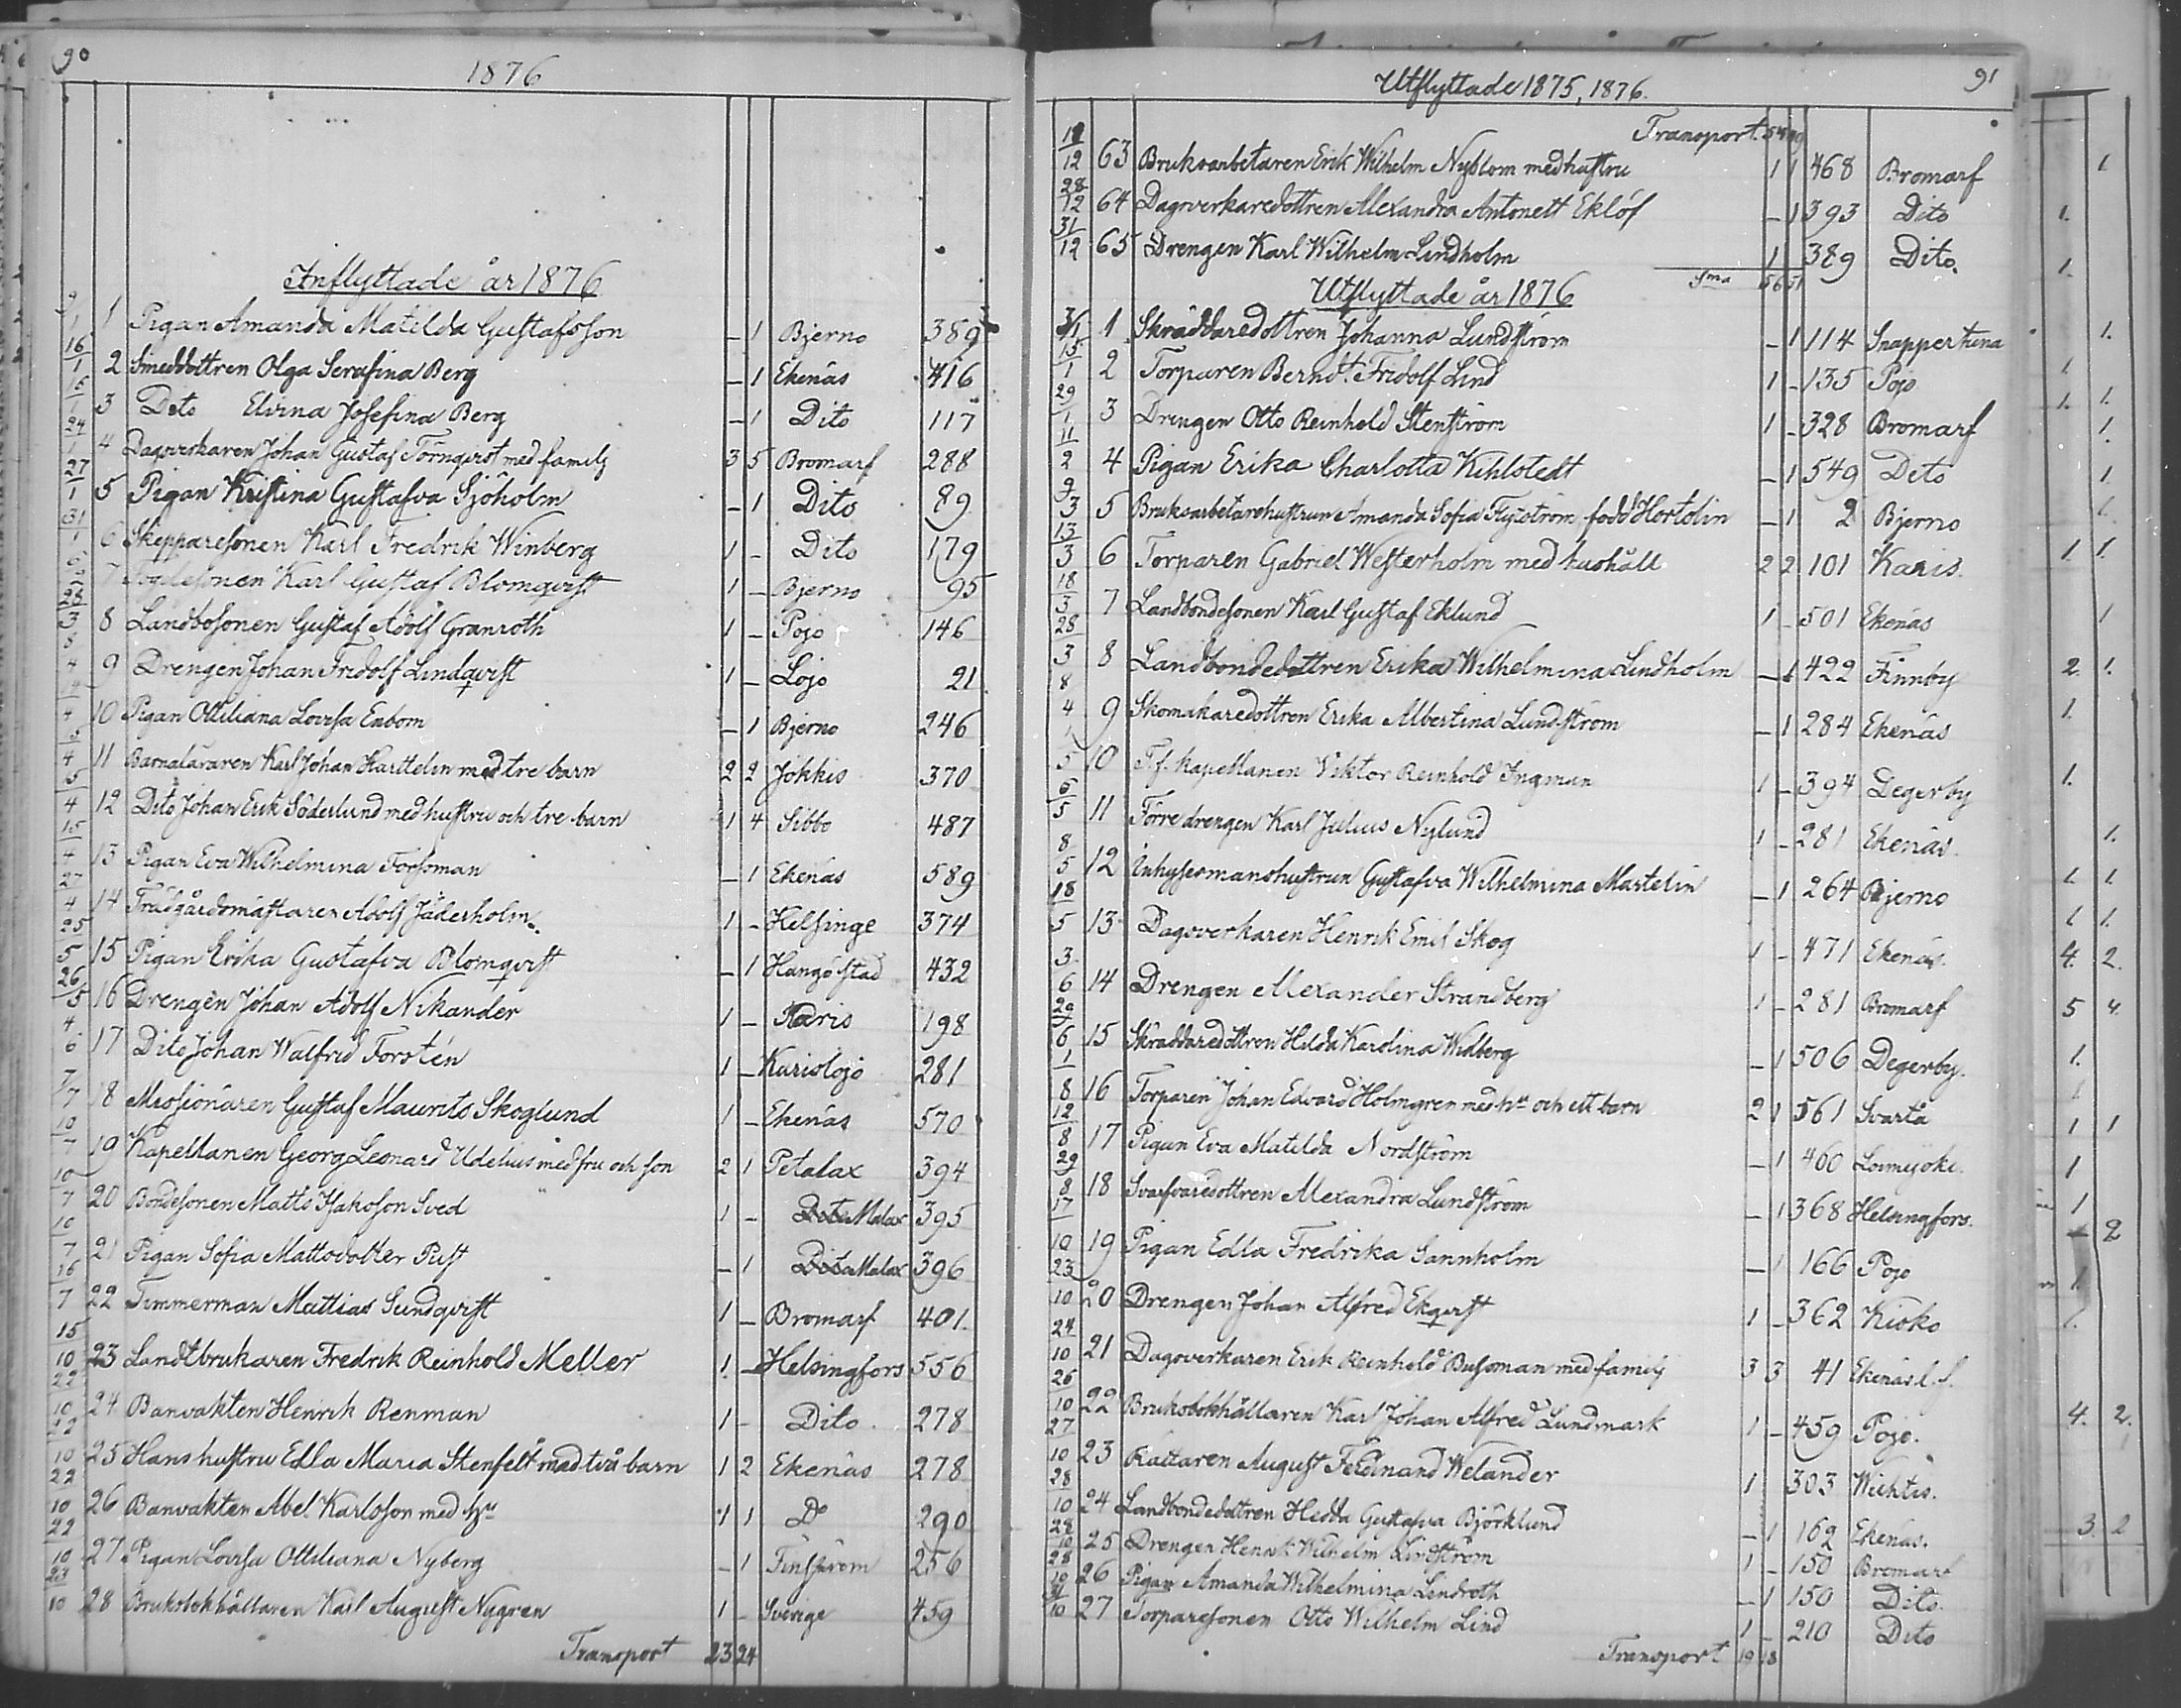 90
1876
Inflyttade år 1876
9/1 1 Pigan Amanda Matilda Gustafsson – 1 Bjerno 389
16/1 2 Smeddottren Olga Serafina Berg – 1 Ekenäs 416
15/1 3 Dito Elvina Josefina Berg – 1 Dito 117
24/1 4 Dagsverkaren Johan Gustaf Törnqvist med familj 3 5 Bromarf 288
27/1 5 Pigan Kristina Gustafva Sjöholm – 1 Dito 89
31/1 6 Skepparesonen Karl Fredrik Winberg 1 – Dito 179
7 Karl Gustaf Blomqvist 1 – Bjerno 95
28/3 8 Landbosonen Gustaf Adolf Granroth 1 – Pojo 146
8/4 9 Drengen Johan Fridolf Lindqvist 1 – Lojo 21
14/4 10 Pigan Ottiliana Lovisa Enbom – 1 Bjerno 246
5/4 11 Barnaläraren Karl Johan Harttelin med tre barn 2 2 Jokkis 370
5/4 12 Dito Johan Erik Söderlund med hustru och tre barn 1 4 Sibbo 487
15/4 13 Pigan Eva Wilhelmina Forsman – 1 Ekenäs 589
27/4 14 Trädgårdsmästaren Adolf Jäderholm 1 – Helsinge 374
25/5 15 Pigan Erika Gustafva Blomqvist – 1 Hangö stad 432
26/5 16 Drengen Johan Adolf Nikander 1 – Karis 198
4/6 17 Dito Johan Walfrid Forstén 1 – Karislojo 281
7/7 18 Missionären Gustaf Maurits Skoglund 1 – Ekenäs 570
10/7 19 Kapellanen Georg Leonard Udelius med fru och son 2 1 Petalax 394
10/7 20 Bondesonen Matts Isaksson Sved 1 – Dito Malax 395
10/7 21 Pigan Sofia Mattsdotter Pist – 1 Dito Malax 396
16/7 22 Timmerman Mattias Sundqvist 1 – Bromarf 401
15/10 23 Landtbrukaren Fredrik Reinhold Meller 1 – Helsingfors 556
22/10 24 Banvakten Henrik Renman 1 – Dito 278
22/10 25 Hans hustru Edla Maria Stenfelt med två barn 1 2 Ekenäs 278
22/10 26 Banvakten Abel Karlsson med hu 1 1 Do 290
22/10 27 Pigan Lovisa Ottiliana Nyberg – 1 256
23/10 28 Bruksbokhållaren Karl August Nygren 1 – Sverige 459
Transport 23 24
Utflyttade 1875, 1876.
91
Transport
12 63 Bruksarbetaren Erik Wilhelm Nyblom med hustru 1 1 468 Bromarf
28/12 64 Dagsverkaredottren Alexandra Antonett Eklöf – 1 393 Dito
31/12 65 Drengen Karl Wilhelm Lindholm 1 389 Dito.
Sma 56 51
Utflyttade år 1876
3/1 1 Skräddaredottren Johanna Lundström – 1 114 Snappertuna
15/1 2 Torparen Berndt Fridolf Lind 1 – 135 Pojo
29/1 3 Drengen Otto Reinhold Stenström 1 – 328 Bromarf
11/2 4 Pigan Erika Charlotta Kihlstedt – 1 549 Dito
9/3 5 Bruksarbetarehustrun Amanda Sofia Flyström född Hortolin – 1 2 Bjerno
13/3 6 Torparen Gabriel Westerholm med hushåll 2 2 101 Karis.
18/3 7 Landbondesonen Karl Gustaf Eklund 1 – 501 Ekenäs
28/3 8 Landbondedottren Erika Wilhelmina Lindholm – 1 422 Finnby
8/4 9 Skomakaredottren Erika Albertina Lundström – 1 284 Ekenäs
1/5 10 T.f. kapellanen Viktor Reinhold Ingman 1 – 394 Degerby
6/5 11 Förre drengen Karl Julius Nylund 1 – 281 Ekenäs.
8/5 12 Inhysesmanshustrun Gustafva Wilhelmina Martelin – 1 264 Bjerno
18/5 13 Dagsverkaren Henrik Emil Skog 1 – 471 Ekenäs.
3/6 14 Drengen Alexander Strandberg 1 – 281 Bromarf
29/6 15 Skräddaredottren Hilda Karolina Widberg – 1 506 Degerby.
1/8 16 Torparen Johan Edvard Holmgren med hu och ett barn 2 1 561 Svartå
12/8 17 Pigan Eva Matilda Nordström – 1 460 Loimijoki.
29/8 18 Svarfvaredottren Alexandra Lundström – 1 368 Helsingfors.
17/10 19 Pigan Edla Fredrika Sannholm – 1 166 Pojo
23/10 20 Drengen Johan Alfred Ekqvist 1 – 362 Kisko
24/10 21 Dagsverkaren Erik Reinhold Bussman med familj 3 3 41 Ekenäs l. f.
26/10 22 Bruksbokhållaren Karl Johan Alfred Lundmark 1 – 459 Pojo.
27/10 23 Rättaren August Ferdinand Welander 1 303 Wichtis.
28/10 24 Landbondedottren Hedda Gustafva Björklund – 1 162 Ekenäs.
28/10 25 Drengen Henrik Wilhelm Lindström 1 – 150 Bromarf
28/10 26 Pigan Amanda Wilhelmina Lindroth – 1 150 Dito.
31/10 27 Torparesonen Otto Wilhelm Lind 1 – 210 Dito
Transport 19 18